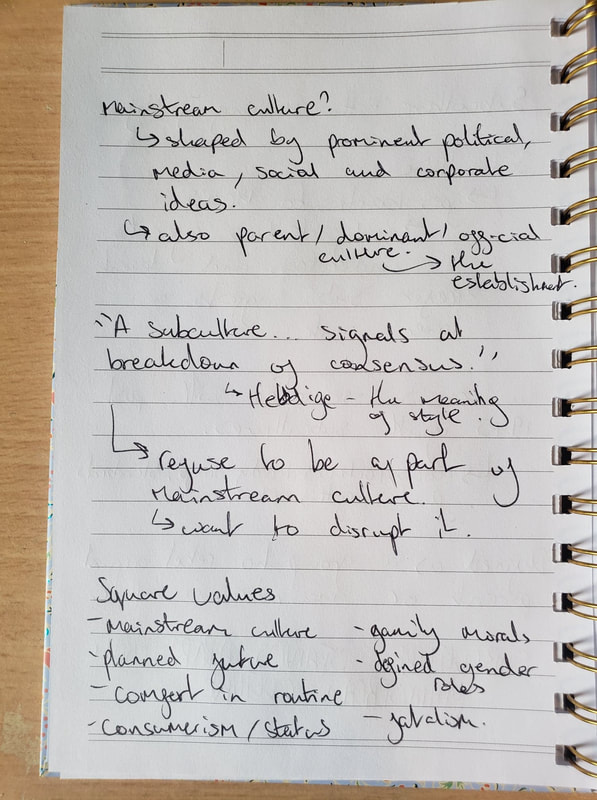 Mainstream culture?
↳ shaped by prominent political,
media, social and corporate
ideas.
↳ also parent/dominant/official
culture. → the
establishment.
"A subculture... signals at
breakdown of consensus."
↳ Hebdige - the meaning
of style.
↳ refuse to be a part of
mainstream culture.
↳ want to disrupt it.
Square values
- mainstream culture - family morals
- planned future - defined gender
roles
- comfort in routine
- consumerism/status - fatalism.